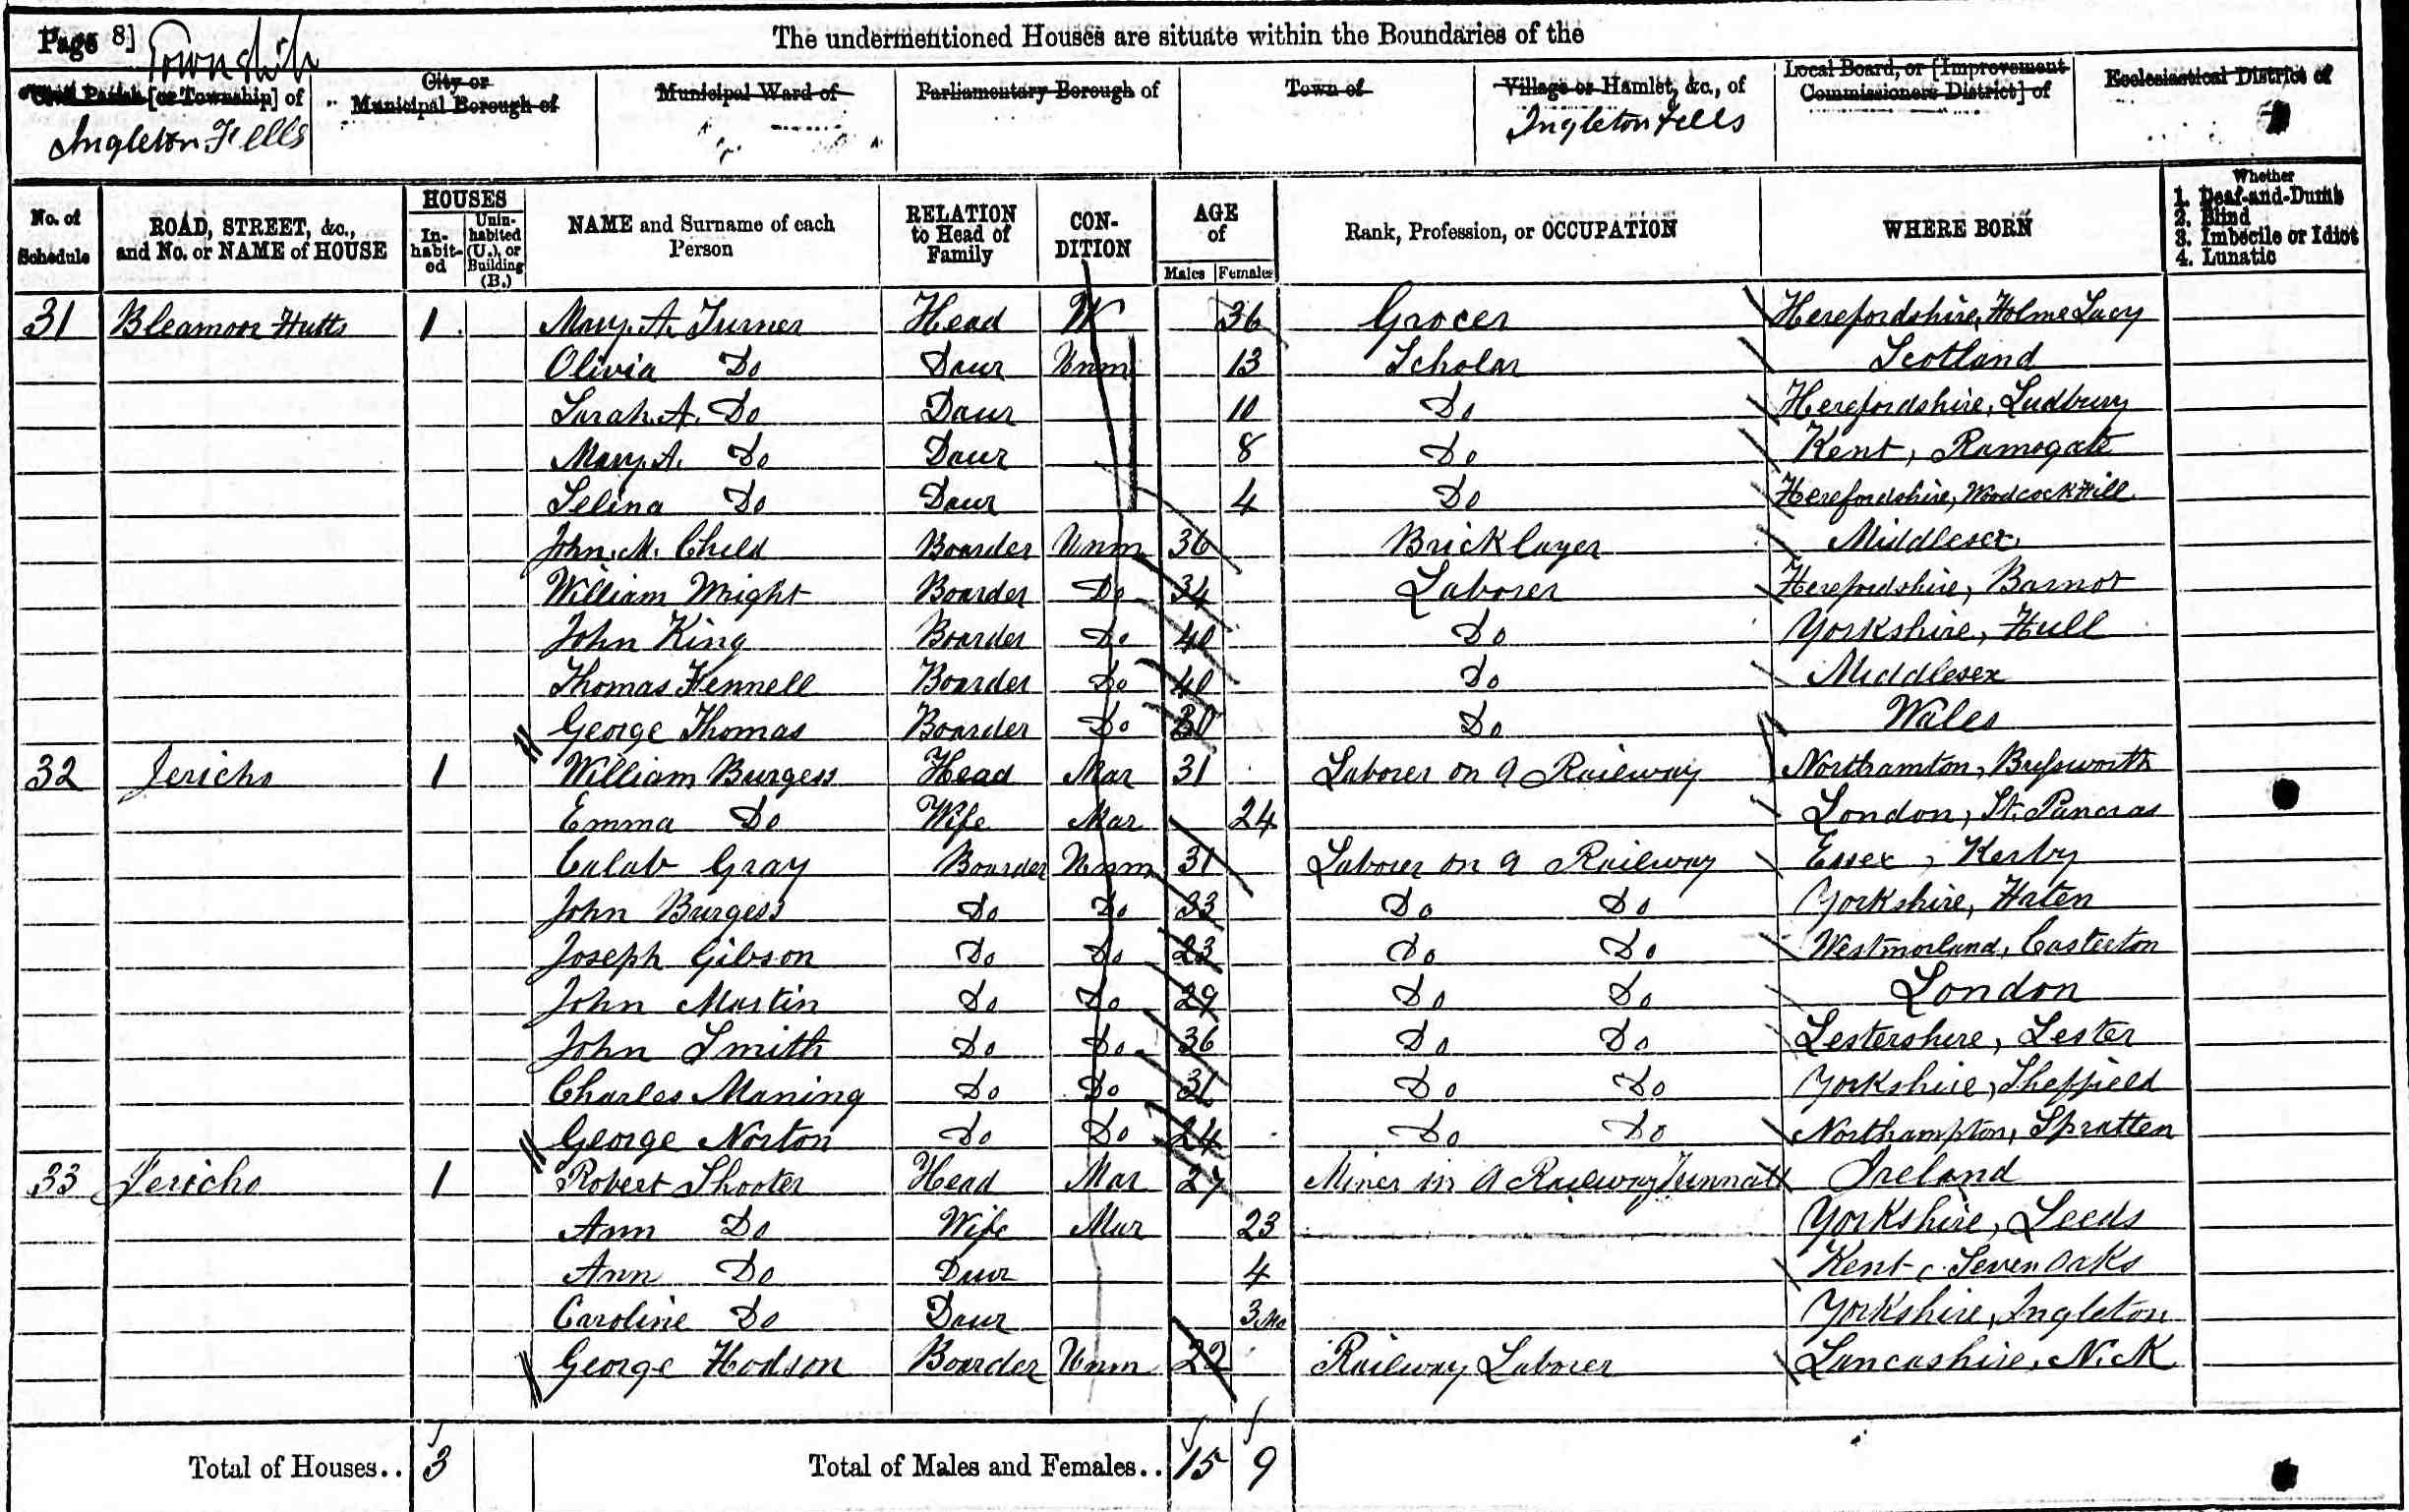 Page 8] The undermentioned Houses are situate within the Boundaries of the
Township
Civil Parish [or Township] of City or Municipal Borough of Municipal Ward of Parliamentary Borough of Town of Village or Hamlet, &c., of Local Board, or [Improvement Commissioners District] of Ecclesiastical District of
Ingleton Fells Ingleton Fells
No. of Schedule ROAD, STREET, &c., and No. or NAME of HOUSE HOUSES In-habit-ed Unin-habited (U.), or Building (B.) NAME and Surname of each Person RELATION to Head of Family CON-DITION AGE of Males Females Rank, Profession, or OCCUPATION WHERE BORN Whether 1. Deaf-and-Dumb 2. Blind 3. Imbecile or Idiot 4. Lunatic
31 Bleamoor Hutts 1 Mary A. Turner Head W 36 Grocer Herefordshire, Holme Lacy
Olivia Do Daur Unm 13 Scholar Scotland
Sarah A. Do Daur 10 Do Herefordshire, Ludbury
Mary A. Do Daur 8 Do Kent, Ramsgate
Selina Do Daur 4 Do Herefordshire, Woodcock Hill
John M. Child Boarder Unm 36 Bricklayer Middlesex
William Wright Boarder Do 34 Laborer Herefordshire, Barnot
John King Boarder Do 40 Do Yorkshire, Hull
Thomas Fennell Boarder Do 40 Do Middlesex
George Thomas Boarder Do 30 Do Wales
32 Jericho 1 William Burgess Head Mar 31 Laborer on a Railway Northamton,
Emma Do Wife Mar 24 London, St. Pancras
Calab Gray Boarder Unm 31 Laborer on a Railway Essex, Kerby
John Burgess Do Do 33 Do Do Yorkshire,
Joseph Gibson Do Do 23 Do Do Westmorland, Casterton
John Martin Do Do 29 Do Do London
John Smith Do Do 36 Do Do Lestershire, Lester
Charles Maning Do Do 31 Do Do Yorkshire, Sheffield
George Norton Do Do 24 Do Do Northampton, Spratten
33 Jericho 1 Robert Shooter Head Mar 27 Miner in a Railway Tunnall Ireland
Ann Do Wife Mar 23 Yorkshire, Leeds
Ann Do Daur 4 Kent, Seven Oaks
Caroline Do Daur 3 Mo Yorkshire, Ingleton
George Hodson Boarder Unm 22 Railway Laborer Lancashire,
Total of Houses.. 3 Total of Males and Females.. 15 9